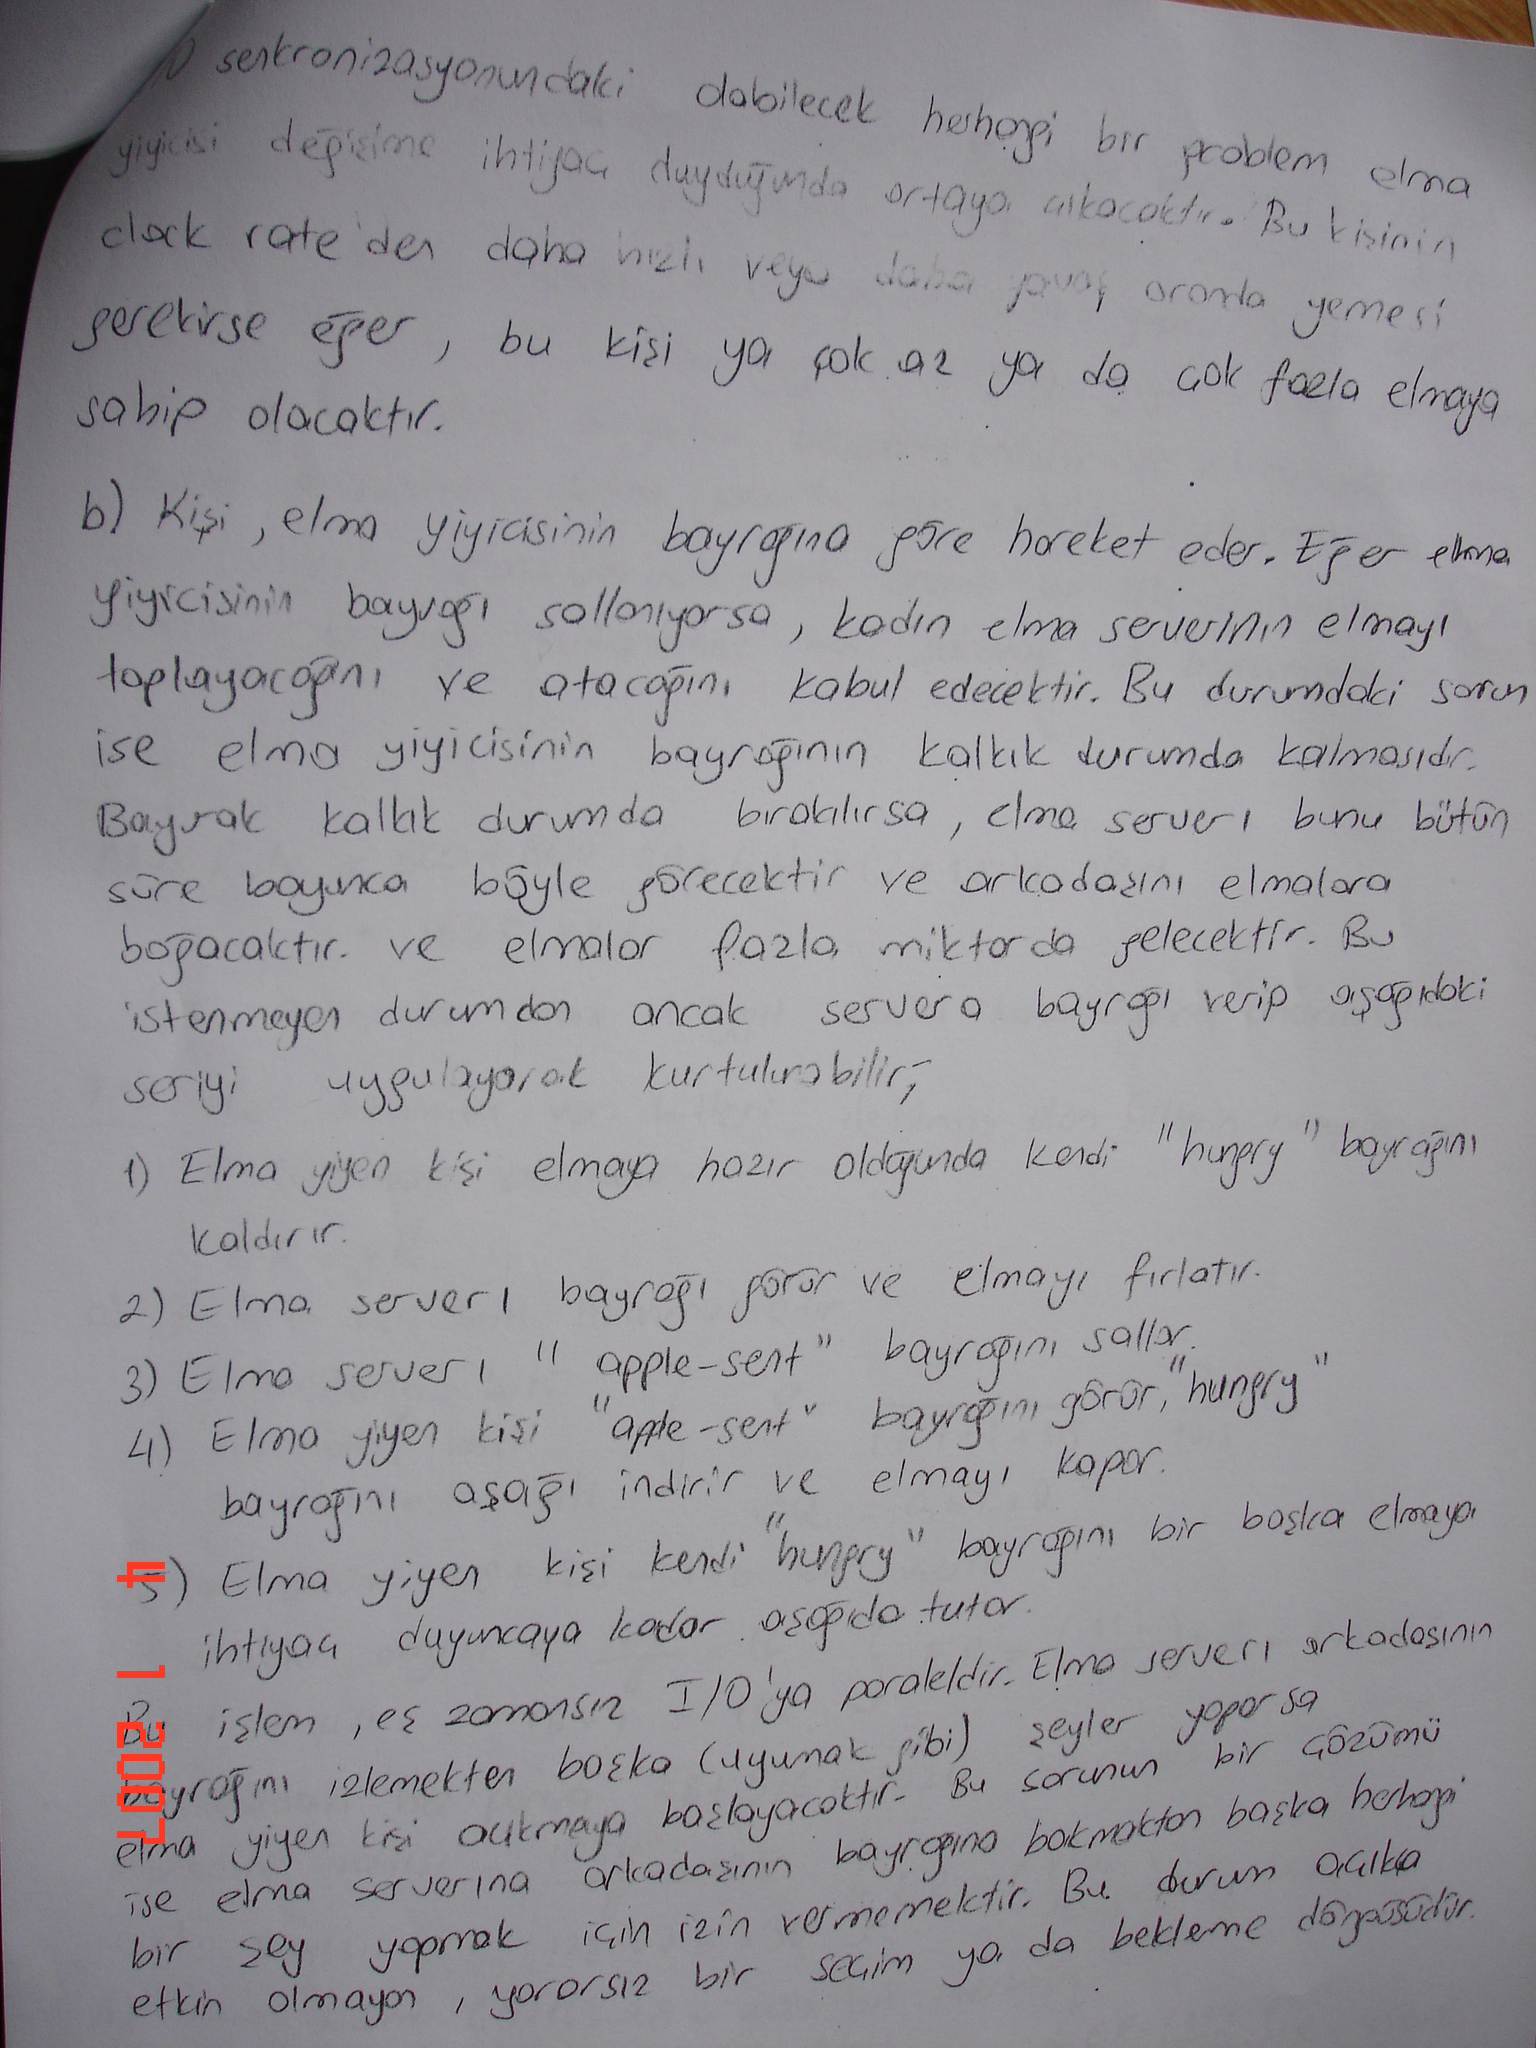 O senkronizasyonundaki olabilecek herhangi bir problem elma
yiyicisi değişime ihtiyacı duyduğunda ortaya çıkacaktır. Bu kişinin
clock rate'den daha hızlı veya daha yavaş oranda yemesi
gerekirse eğer, bu kişi ya çok az ya da çok fazla elmaya
sahip olacaktır.
b) Kişi, elma yiyicisinin bayrağına göre hareket eder. Eğer elma
yiyicisinin bayrağı sallanıyorsa, kadın elma serverının elmayı
toplayacağını ve atacağını kabul edecektir. Bu durumdaki sorun
ise elma yiyicisinin bayrağının kalkık durumda kalmasıdır.
Bayrak kalkık durumda bırakılırsa, elma serverı bunu bütün
süre boyunca böyle görecektir ve arkadaşını elmalara
boğacaktır. ve elmalar fazla miktarda gelecektir. Bu
istenmeyen durumdan ancak servera bayrağı verip aşağıdaki
seriyi uygulayarak kurtulunabilir;
1) Elma yiyen kişi elmaya hazır olduğunda kendi "hungry" bayrağını
kaldırır.
2) Elma serverı bayrağı görür ve elmayı fırlatır.
3) Elma serverı "apple-sent" bayrağını sallar.
4) Elma yiyen kişi "apple-sent" bayrağını görür, "hungry"
bayrağını aşağı indirir ve elmayı kapar.
5) Elma yiyen kişi kendi "hungry" bayrağını bir başka elmaya
ihtiyacı duyuncaya kadar aşağıda tutar.
Bu işlem, eş zamansız I/O'ya paraleldir. Elma serverı arkadaşının
bayrağını izlemekten başka (uyumak gibi) şeyler yaparsa
elma yiyen kişi acıkmaya başlayacaktır. Bu sorunun bir çözümü
ise elma serverına arkadaşının bayrağına bakmaktan başka herhangi
bir şey yapmak için izin vermemektir. Bu durum açıkça
etkin olmayan, yararsız bir seçim ya da bekleme döngüsüdür.
4 1 2007